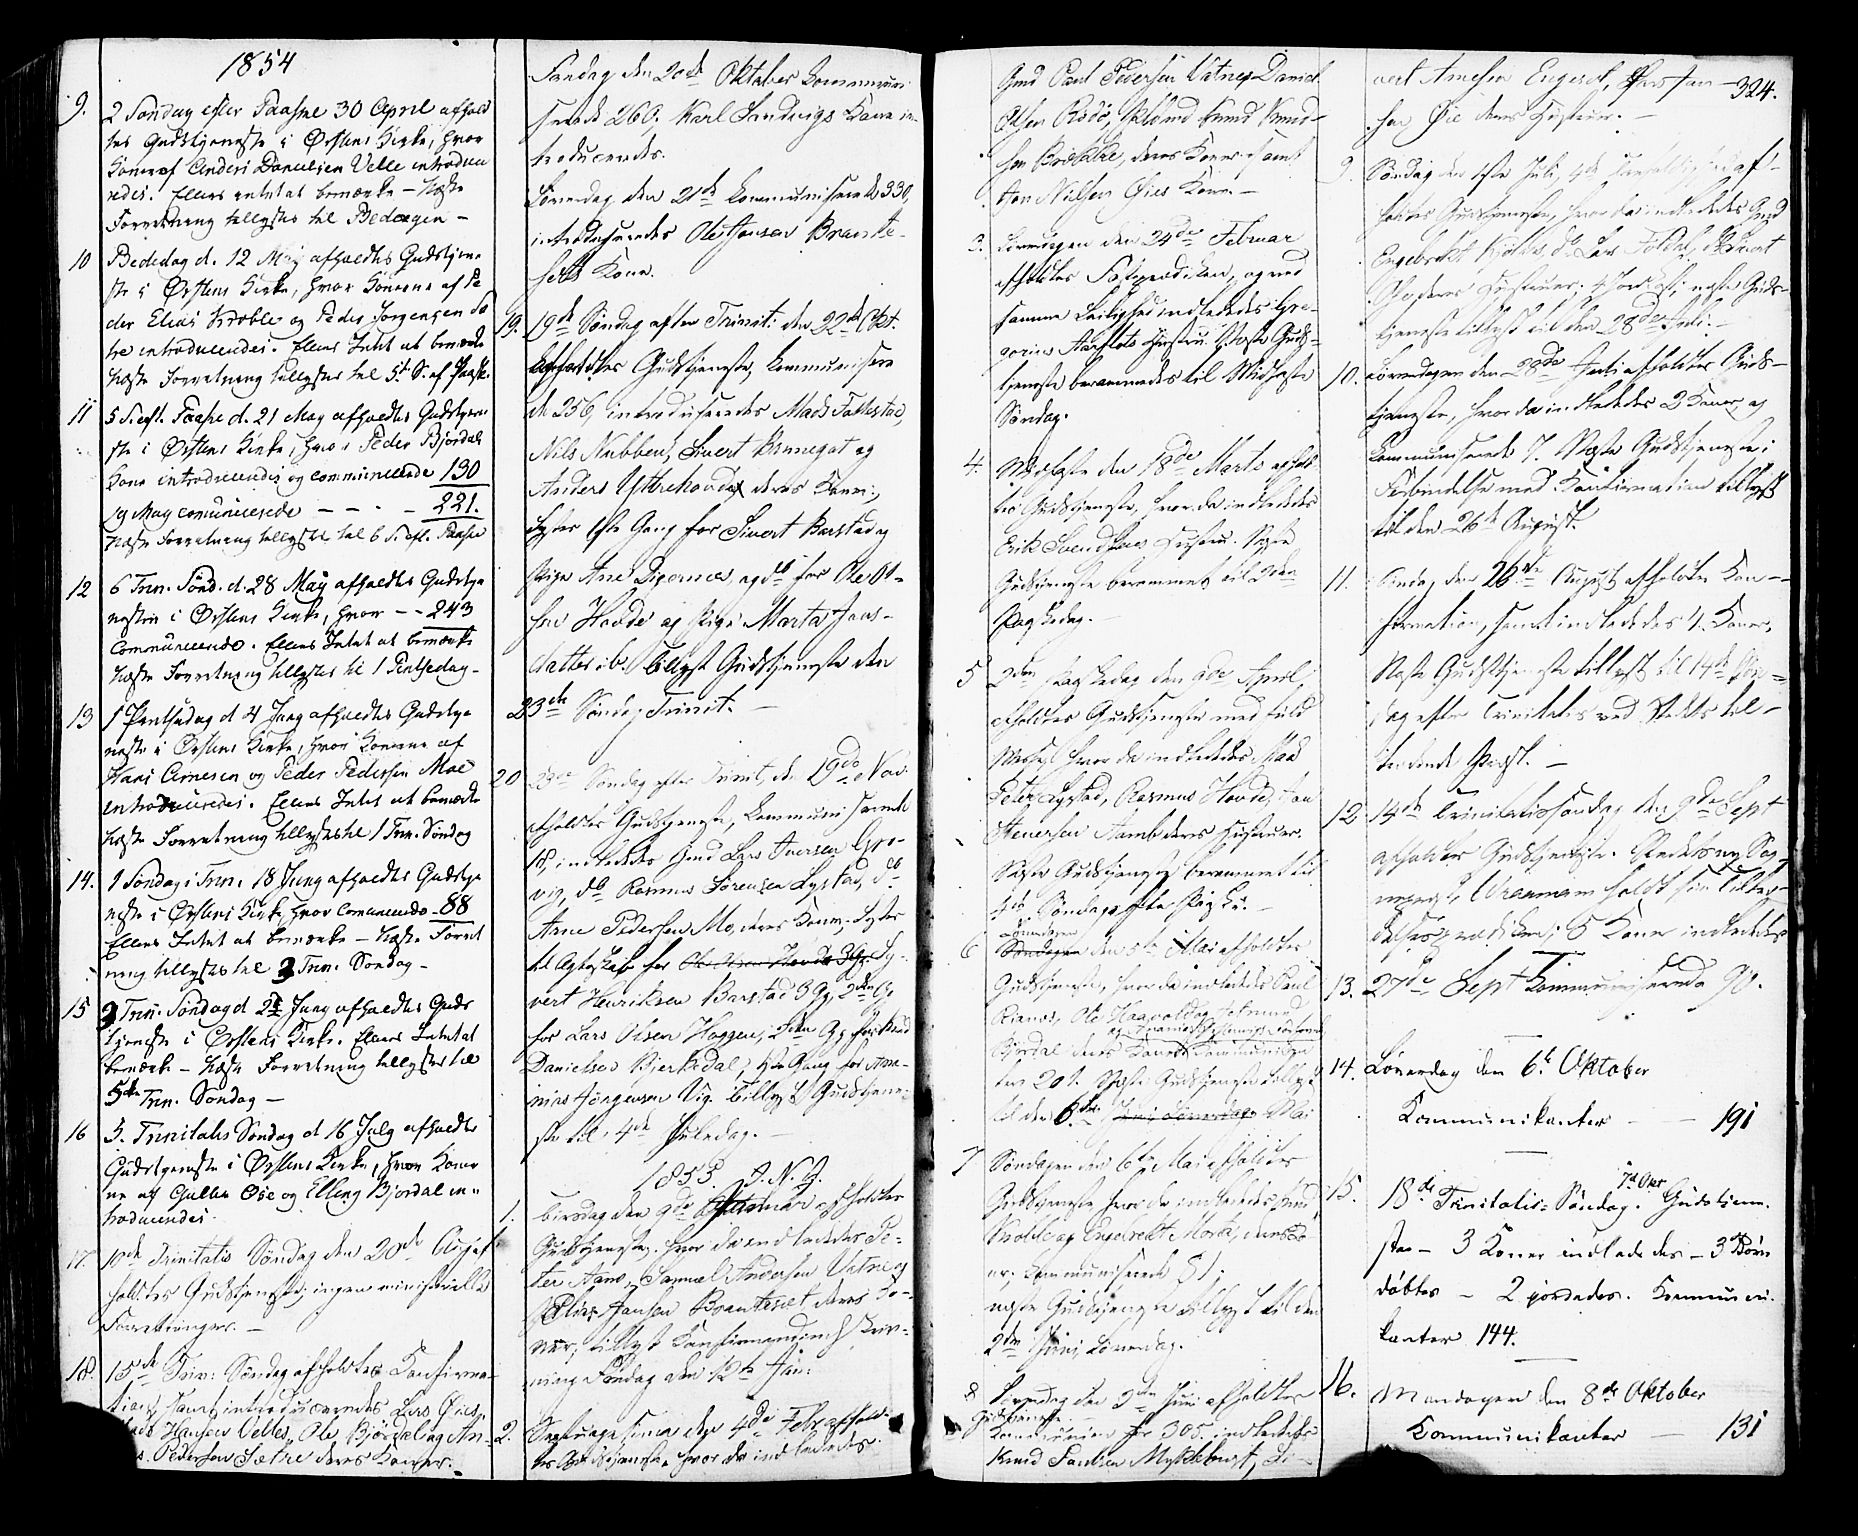 1854
9. 2 Søndag efter Paaske 30 April afhold
tes Gudstjeneste i Ørstens Kirke, hvor
Konen af Anders Danielsen Velle introduce
redes. Ellers intet at bemærke – Næste
Forretning tillystes til Bededagen –
10 Bededag d. 12 May afholdtes Gudstjene
ste i Ørstens Kirke, hvor Konerne af Pe
der Elias Kroble og Peder Jørgensen Sæ
tre introduceredes. Ellers Intet at bemærke
Næste Forretning tillystes til 5te S. ef. Paaske.
11 5 S. eft. Paaske d. 21 May afholdtes Gudstjene
ste i Ørstens Kirke, hvor Peder Bjørdals
Kone introduceredes og communicerede 130
19 May comunicerede – – – – 221.
Næste Forretning tillystes til 6 S. eft. Paaske
12 6 Sønd. d. 28 May afholdtes Gudstje
nesten i Ørstens Kirke, hvor – – 243
Communicerede. Ellers Intet at bemærke
Næste Forretning tillystes til 1 Pintsedag –
13 1 Pintsedag d 4 Juny afholdtes Gudstje
neste i Ørstens Kirke, hvor Konerne af
Hans Arnesen og Peder Pedersen Moe
introduceredes. Ellers Intet at bemærke
Næste Forretning tillystes til 1 Trin. Søndag
14. 1 Søndag i Trin. 18 Juny afholdtes Gudstje
neste i Ørstens Kirke, hvor Comunicerede – 88
Ellers Intet at bemærke – Næste Forret
ning tillystes til 3 Trin. Søndag –
15 3 Trin. Søndag d 2 Juny afholdtes Guds
tjeneste i Ørstens Kirke. Ellers Intet at
bemærke – Næste Forretning tillystes til
5te Trin. Søndag –
16 5. Trinitatis Søndag d 16 July afholdtes
Gudstjeneste i Ørstens Kirke, hvor Koner
ne af Øie og Elling Bjordal in„
troduceredes
17. 10de Trinitatis Søndag den 20de Aug. af
holdtes Gudstjeneste; ingen ministerielle
Forretninger. –
18. 15de Trin: Søndag afholdtes Confirma-
tion, samt introduceredes Lars Øies,
Hansen Velles, Ole Bjørdal og An-
Pedersen Sætre deres Koner.
Fredag den 20de Oktober kommuni
serede 260. Karl Landvigs Kone in
troduceredes.
Løverdag den 21de kommuniserede 330,
introduseredes Ole Jonsen Brautesets
Kone.
19. 19de Søndag efter Trinit: den 22de Okt.
afholdtes Gudstjeneste, kommunisere
de 256, introduseredes Mads Follestad,
Nils Nubben, Sivert Brunegot og
Anders Yttrehovde deres Koner;
Lystes 1ste Gang for Sivert Barstad og
Pige Ane og do for Ole Ol-
sen Hovde og Pige Marta Jons-
datter ib. Tillyst Gudstjeneste den
23de Søndag Trinit. –
20 23de Søndag efter Trinit, den 19de Nov.
afholdtes Gudstjeneste, kommuniserede
18, indlededes Gmd Lars Iversen Gro-
vig, do Rasmus Sørensen Lystad, do
Arne Pedersen Mo, deres Koner; Lystes
til Ægteskab for Ole Olsen Hovde 3 Gg. Sy-
vert Henriksen Barstad 3 Gg, 2den Gg
for Lars Olsen Haggen, 2den Gg for Knud
Danielsen Bjerkedal, 1ste Gang for
Jørgensen Vig. Tillyst Gudstjene-
ste til 4de Juledag. –
1855. I. N. J.
1. Tirsdag den 9de Januar afholdtes
Gudstjeneste, hvor da indlededes Pe-
ter Aams, Samuel Andersen Vatne og
Elias Jansen Brauteset deres Ko-
ner; tillyst Confirmandindskriv-
ning Søndag den 12te Jan:
2. Septuagesima den 4de Febr afhold-
tes Gudstjeneste, hvor da indlededes
Gmd Paul Pedersen Vatne, Daniel
Olsen Rödö, Knud Knud-
sen Brekke, deres Koner samt
Jon Nilsen Øies Kone. –
3. Løverdagen den 24de Februar
afholdtes Fasteprædiken, og ved
samme Leilighed indlededes Gre-
gorius Aarflots Hustru. Næste Guds-
tjeneste berammedes til Midfaste
Søndag.
4. Midfaste den 18de Marts afhold-
tes Gudstjeneste, hvor da indlededes
Erik Svendsens Hustru. Næste
Gudstjeneste berammet til 2den
Paaskedag. –
5 2den Paaskedag den 9de April,
afholdtes Gudstjeneste med fuld
Messe, hvor da indlededes
Peter Lystad, Rasmus Hovde, Jon
Steuersen Aamb deres Hustruer.
Næste Gudstjeneste berammet til
4de Søndag efter Paaske. –
Løverdagen
6 Søndagen den 5te Mai afholdtes
Gudstjeneste, hvor da indlededes Paul
Rianes, Ole Haavold og
Bjørdal deres Koner. Kommunikan
ter 201. Næste Gudstjeneste tillyst
til den 6te Juni Løverdag Mai
7 Søndagen den 6te Mai afholdtes
Gudstjeneste hvor da indlededes Knud
Kroble og Engebrekt Mork, deres Ko-
ner, kommuniserede 51;
næste Gudstjeneste tillyst til den
2den Juni, Løverdag.
8 Løverdag den 2den Juni afholdtes
Gudstjeneste
Kommunion for 305. indlededes
Knud Paulsen Myklebust,
Arnesen Engeset, 324.
sen Øie deres Hustruer. –
9. Søndag den 1ste Juli, 4de afholdtes
Gudstjeneste, hvor da indlededes Gmd
Engebrekt Kjølaas, do Lars
deres Hustruer; næste Guds-
tjeneste tillyst til den 28de Juli. –
10. Løverdagen den 28de Juli afholdtes Guds-
tjeneste, hvor da indlededes 2 Koner, og
kommuniserede 7. Næste Gudstjeneste i
Forbindelse med Konfirmation tillyst
til den 26de August.
11. Søndag den 26de August afholdtes Kon-
firmation, samt indlededes 4. Koner,
Næste Gudstjeneste tillyst til 14de Søn-
dag efter Trinitatis ved Stedets til-
trædende Præst. –
12. 14de Trinitatissøndag den 9de Sept
afholdtes Gudstjeneste. Stedets ny Sog-
nepræst, Vraamann holdt sin Tiltræ-
delsesprædiken; 5 Koner indlededes
13. 27de Sept Kommuniserede 90.
14. Løverdag den 6te Oktober
Kommunikanter – – 191
15. 18de Trinitatis-Søndag. 7d Okt Gudstjene-
ste – 3 Koner indlededes – 3 Børn
døbtes – 2 jordedes. Kommuni-
kanter 144.
16. Mandagen den 8de Oktober
Kommunikanter – 131